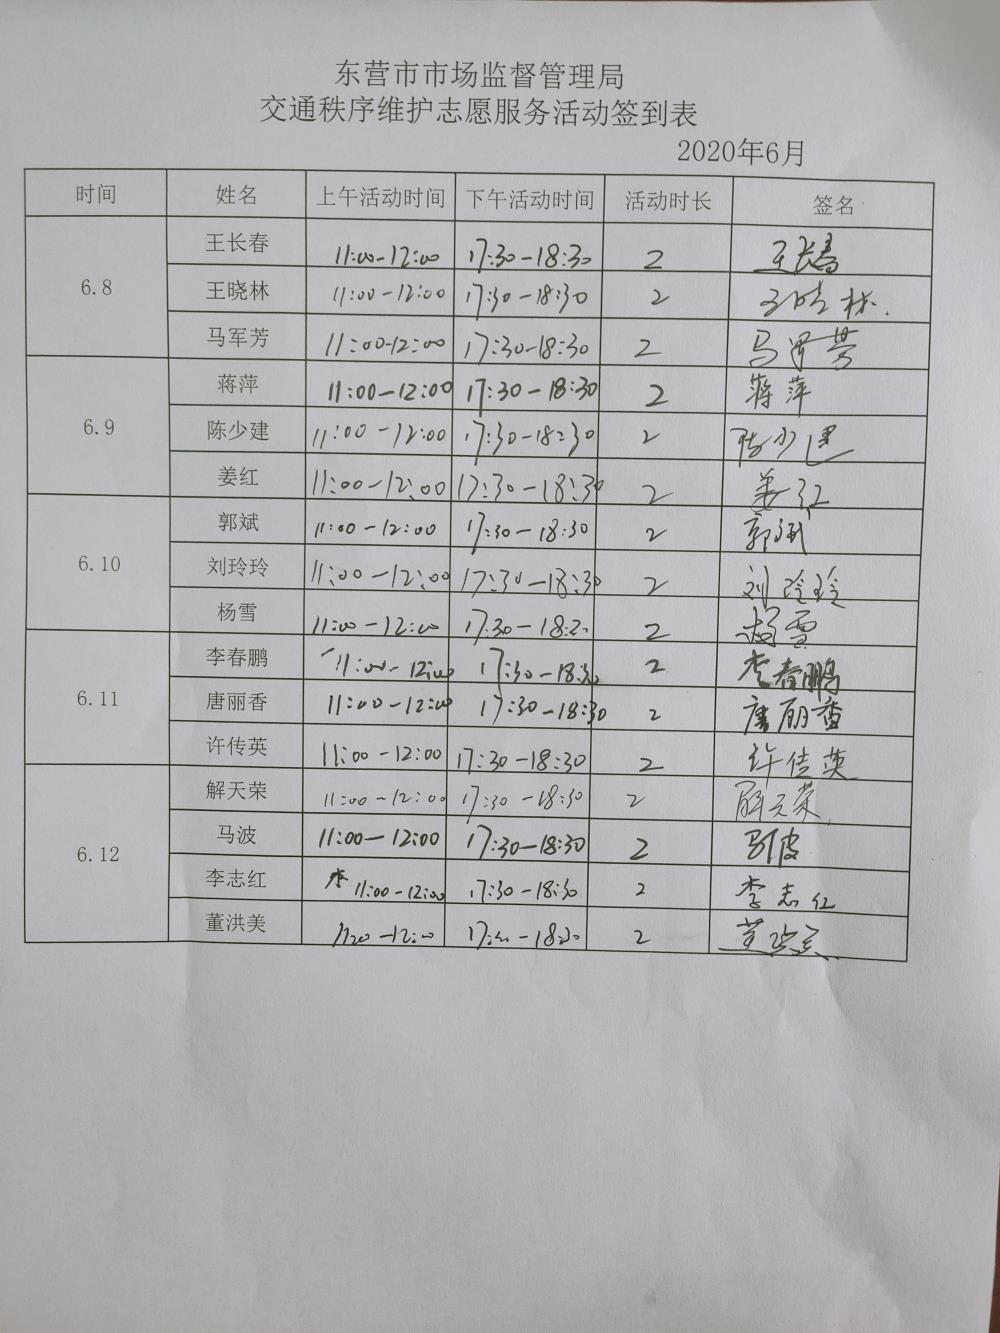 东营市市场监督管理局
交通秩序维护志愿服务活动签到表
2020年6月
时间 姓名 上午活动时间 下午活动时间 活动时长 签名
6.8
王长春 11:00-12:00 17:30-18:30 2 王长春
王晓林 11:00-12:00 17:30-18:30 2 王晓林.
马军芳 11:00-12:00 17:30-18:30 2 马军芳
6.9
蒋萍 11:00-12:00 17:30-18:30 2 蒋萍
陈少建 11:00-12:00 17:30-18:30 2 陈少建
姜红 11:00-12:00 17:30-18:30 2 姜红
6.10
郭斌 11:00-12:00 17:30-18:30 2 郭斌
刘玲玲 11:00-12:00 17:30-18:30 2 刘玲玲
杨雪 11:00-12:00 17:30-18:30 2 杨雪
6.11
李春鹏 11:00-12:00 17:30-18:30 2 李春鹏
唐丽香 11:00-12:00 17:30-18:30 2 唐丽香
许传英 11:00-12:00 17:30-18:30 2 许传英
6.12
解天荣 11:00-12:00 17:30-18:30 2 解天荣
马波 11:00-12:00 17:30-18:30 2 马波
李志红 11:00-12:00 17:30-18:30 2 李志红
董洪美 2 董洪美